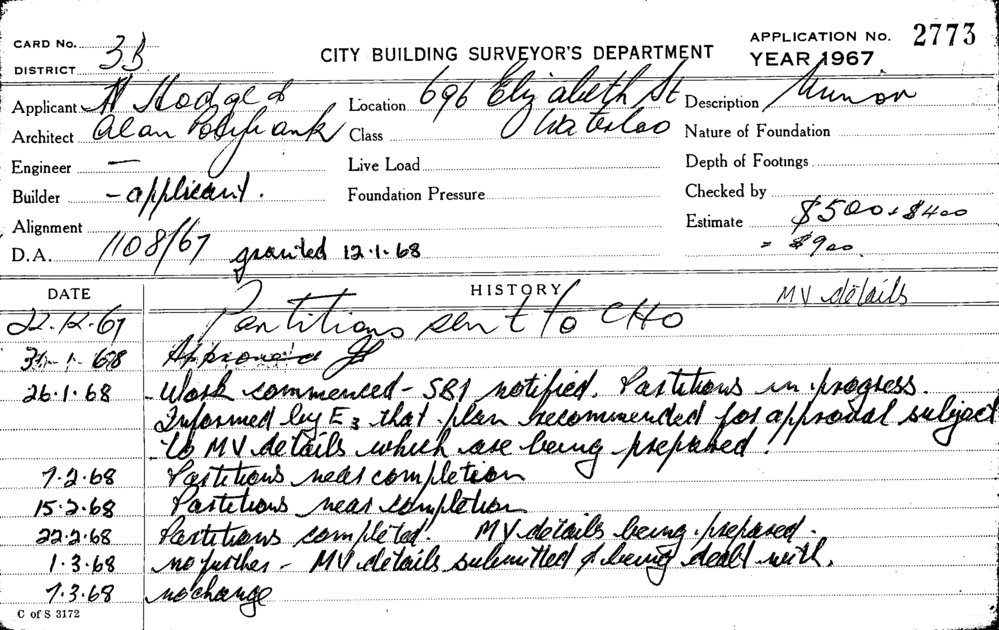 CARD No. 3B
DISTRICT
CITY BUILDING SURVEYOR'S DEPARTMENT
APPLICATION No. 2773
YEAR 1967
Applicant N Hodges
Location 696 Elizabeth St
Waterloo
Description Minor
Architect Alan
Class
Nature of Foundation
Engineer —
Live Load
Depth of Footings
Builder - applicant.
Foundation Pressure
Checked by
Alignment
Estimate $500 + $400
= $900
D.A. 1108/67 granted 12.1.68
DATE
HISTORY
MV details
22.12.67 Partitions sent to CHO
31-1-68 Approved
26.1.68 Work commenced - SB1 notified. Partitions in progress.
Informed by E3 that plan recommended for approval subject
to MV details which are being prepared.
7.2.68 Partitions near completion
15.2.68 Partitions near completion
22.2.68 Partitions completed. MV details being prepared.
1.3.68 no further - MV details submitted & being dealt with.
7.3.68 no change
C of S 3172